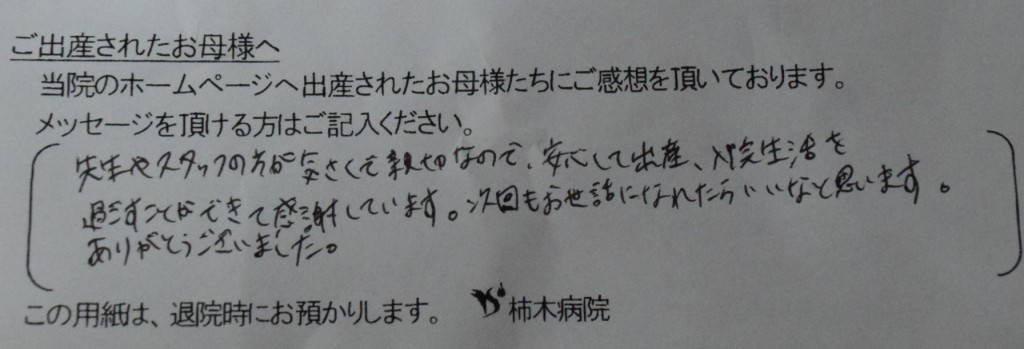 ご出産されたお母様へ
当院のホームページへ出産されたお母様たちにご感想を頂いております。
メッセージを頂ける方はご記入ください。
先生やスタッフの方が気さくで親切なので、安心して出産、入院生活を
過ごすことができて感謝しています。次回もお世話になれたらいいなと思います。
ありがとうございました。
この用紙は、退院時にお預かりします。 柿木病院